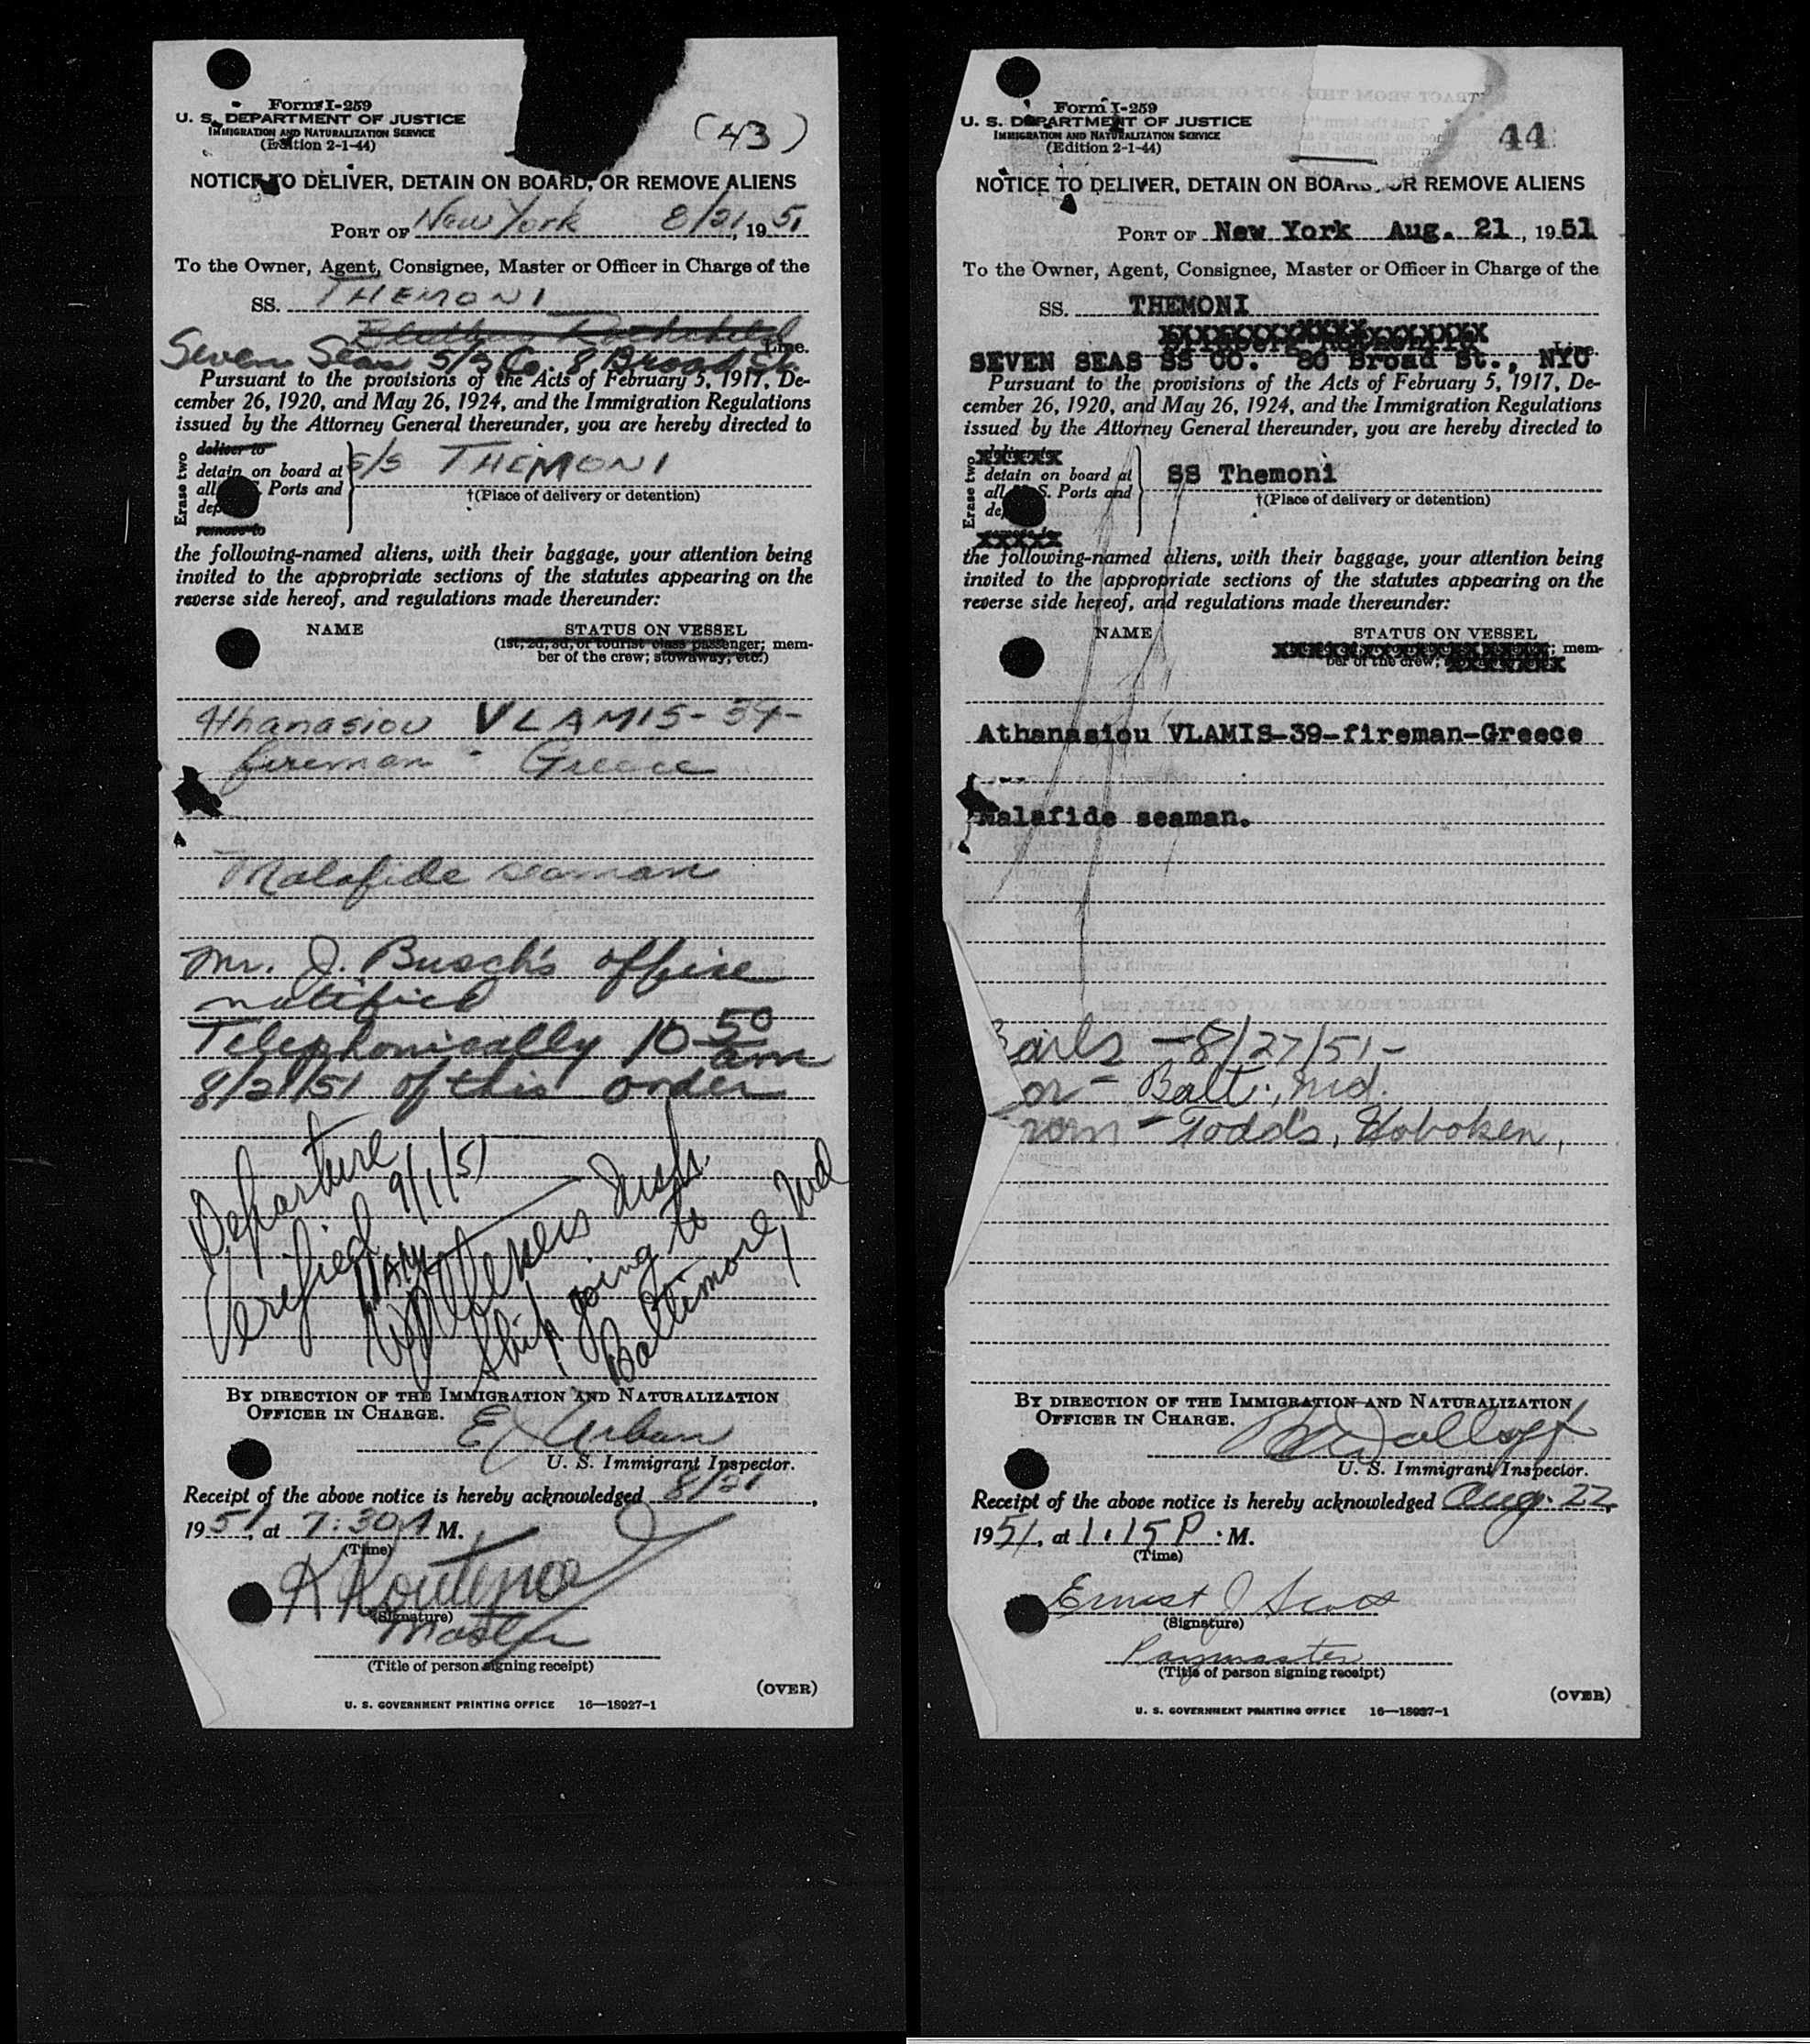 Form I-259
U. S. DEPARTMENT OF JUSTICE
IMMIGRATION AND NATURALIZATION SERVICE
(Edition 2-1-44)
(43)
NOTICE TO DELIVER, DETAIN ON BOARD, OR REMOVE ALIENS
PORT OF New York 8/21, 1951
To the Owner, Agent, Consignee, Master or Officer in Charge of the
SS. THEMONI
Line.
Seven Seas S/S Co. 8 Broad St.
Pursuant to the provisions of the Acts of February 5, 1917, De-
cember 26, 1920, and May 26, 1924, and the Immigration Regulations
issued by the Attorney General thereunder, you are hereby directed to
Erase two
deliver to
detain on board at
all S. Ports and
dep
remove to
S/S THEMONI
†(Place of delivery or detention)
the following-named aliens, with their baggage, your attention being
invited to the appropriate sections of the statutes appearing on the
reverse side hereof, and regulations made thereunder:
NAME
STATUS ON VESSEL
(1st, 2d, 3d, or tourist class passenger; mem-
ber of the crew; stowaway, etc.)
Athanasiou VLAMIS-
fireman - Greece
Malafide seaman
Mr. J. Busch's office
notified
Telephonically 10 50 am
8/21/51 of this order
Departure
Verified 9/1/51
Ship going to
Baltimore, Md
BY DIRECTION OF THE IMMIGRATION AND NATURALIZATION
OFFICER IN CHARGE.
E Urban
U. S. Immigrant Inspector.
Receipt of the above notice is hereby acknowledged 8/21,
1951, at 7:30 A M.
(Time)
(Signature)
Master
(Title of person signing receipt)
(OVER)
U. S. GOVERNMENT PRINTING OFFICE 16—18927-1
Form I-259
U. S. DEPARTMENT OF JUSTICE
IMMIGRATION AND NATURALIZATION SERVICE
(Edition 2-1-44)
44
NOTICE TO DELIVER, DETAIN ON BOARD, OR REMOVE ALIENS
PORT OF New York Aug. 21, 1951
To the Owner, Agent, Consignee, Master or Officer in Charge of the
SS. THEMONI
Line.
SEVEN SEAS SS CO. 80 Broad St., NYC
Pursuant to the provisions of the Acts of February 5, 1917, De-
cember 26, 1920, and May 26, 1924, and the Immigration Regulations
issued by the Attorney General thereunder, you are hereby directed to
Erase two
detain on board at
all S. Ports and
de
SS Themoni
†(Place of delivery or detention)
the following-named aliens, with their baggage, your attention being
invited to the appropriate sections of the statutes appearing on the
reverse side hereof, and regulations made thereunder:
NAME
STATUS ON VESSEL
; mem-
ber of the crew;
Athanasiou VLAMIS-39-fireman-Greece
Malafide seaman.
ails - 8/27/51 -
or - Balt., Md.
rom - Todd's, Hoboken,
BY DIRECTION OF THE IMMIGRATION AND NATURALIZATION
OFFICER IN CHARGE.
U. S. Immigrant Inspector.
Receipt of the above notice is hereby acknowledged Aug. 22,
1951, at 1:15 P. M.
(Time)
Ernest J Scott
(Signature)
Paymaster
(Title of person signing receipt)
(OVER)
U. S. GOVERNMENT PRINTING OFFICE 16—18927-1